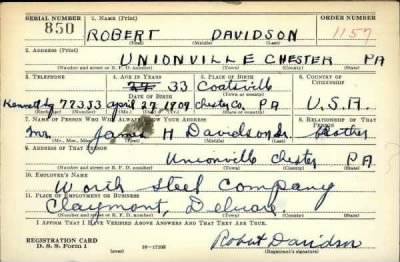 SERIAL NUMBER 1. NAME (Print) ORDER NUMBER
850 ROBERT DAVIDSON 1157
(First) (Middle) (Last)
2. ADDRESS (Print)
UNIONVILLE CHESTER PA
(Number and street or R. F. D. number) (Town) (County) (State)
3. TELEPHONE 4. AGE IN YEARS 5. PLACE OF BIRTH 6. COUNTRY OF CITIZENSHIP
33 Coatsville
DATE OF BIRTH
77353 April 27 1909 Chester Co. PA U.S.A.
7. NAME OF PERSON WHO WILL ALWAYS KNOW YOUR ADDRESS 8. RELATIONSHIP OF THAT PERSON
Mr. James H Davidson Brother
(Mr., Mrs., Miss) (First) (Middle) (Last)
9. ADDRESS OF THAT PERSON
Unionville Chester PA.
(Number and street or R. F. D. number) (Town) (County) (State)
10. EMPLOYER'S NAME
Worth Steel Company
11. PLACE OF EMPLOYMENT OR BUSINESS
Claymont,
(Number and street or R. F. D. number) (Town) (County) (State)
I AFFIRM THAT I HAVE VERIFIED ABOVE ANSWERS AND THAT THEY ARE TRUE.
REGISTRATION CARD
D. S. S. Form 1 (over) 16-17105 Robert Davidson
(Registrant's signature)